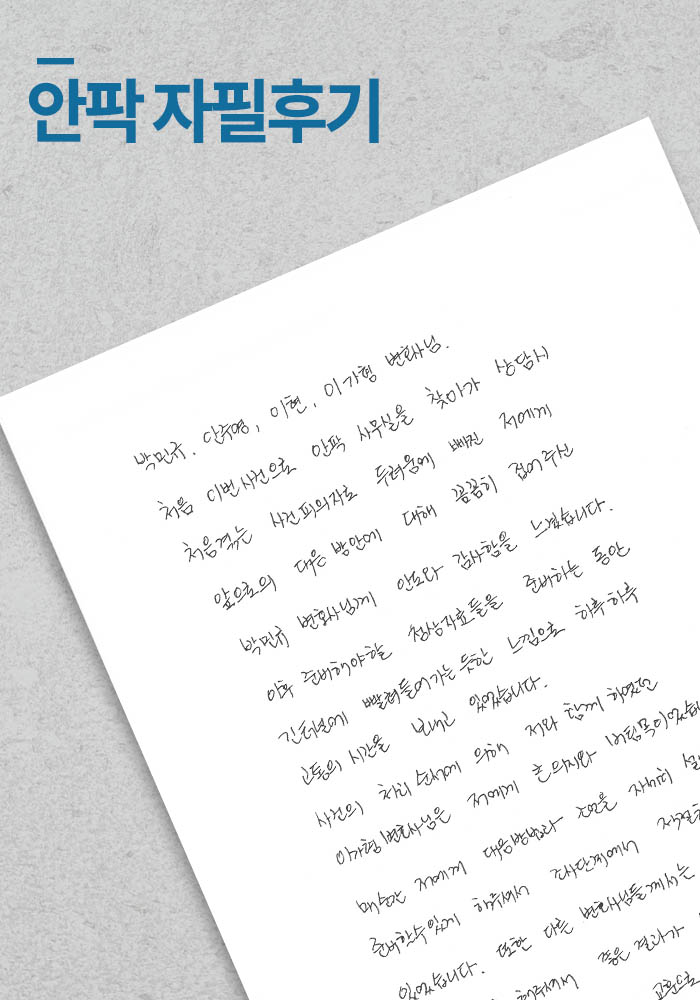 안팍 자필후기
박민규, 안주영, 이현, 이가형 변호사님.
처음 이번사건으로 안팍 사무실을 찾아가 상담시
처음겪는 사건피의자로 두려움에 빠진 저에게
앞으로의 대응방안에 대해 꼼꼼히 집어주신
박민규 변호사님께 안도와 감사함을 느꼈습니다.
이후 준비해야할 정상자료들을 준비하는 동안
긴터널에 빨려들어가는듯한 느낌으로 하루하루
고통의 시간을 보내고 있었습니다.
사건의 처리 순서에 의해 저와 함께하였던
이가형변호사님은 저에게 큰의지와 버팀목이었습
매순간 저에게 대응방법과 조언을 자세히
준비할수있게 해주셔서 조사단계에서
있었습니다. 또한 다른 변호사님들께서는
해주셔서 좋은결과가
교훈으로